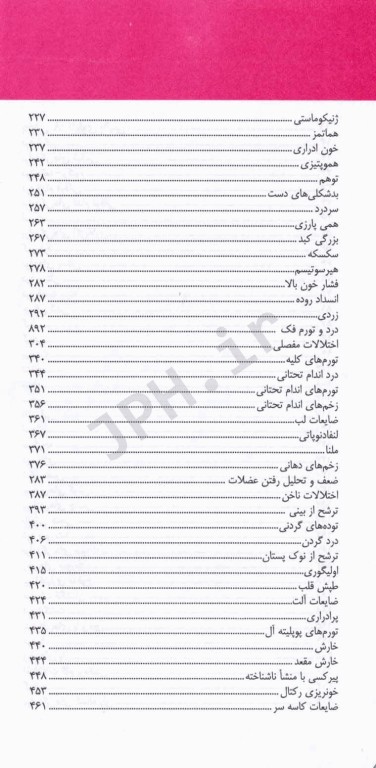 ژنیکوماستی ۲۲۷
هماتمز ۲۳۱
خون ادراری ۲۳۷
هموپتیزی ۲۴۲
توهم ۲۴۸
بدشکلی‌های دست ۲۵۱
سردرد ۲۵۷
همی پارزی ۲۶۳
بزرگی کبد ۲۶۷
سکسکه ۲۷۳
هیرسوتیسم ۲۷۸
فشار خون بالا ۲۸۲
انسداد روده ۲۸۷
زردی ۲۹۲
درد و تورم فک ۸۹۲
اختلالات مفصلی ۳۰۴
تورم‌های کلیه ۳۴۰
درد اندام تحتانی ۳۴۴
تورم‌های اندام تحتانی ۳۵۱
زخم‌های اندام تحتانی ۳۵۶
ضایعات لب ۳۶۱
لنفادنوپاتی ۳۶۷
ملنا ۳۷۱
زخم‌های دهانی ۳۷۶
ضعف و تحلیل رفتن عضلات ۲۸۳
اختلالات ناخن ۳۸۷
ترشح از بینی ۳۹۳
توده‌های گردنی ۴۰۰
درد گردن ۴۰۶
ترشح از نوک پستان ۴۱۱
اولیگوری ۴۱۵
طپش قلب ۴۲۰
ضایعات آلت ۴۲۴
پرادراری ۴۳۱
تورم‌های پوپلیته آل ۴۳۵
خارش ۴۴۰
خارش مقعد ۴۴۴
پیرکسی با منشأ ناشناخته ۴۴۸
خونریزی رکتال ۴۵۳
ضایعات کاسه سر ۴۶۱
JPH.ir